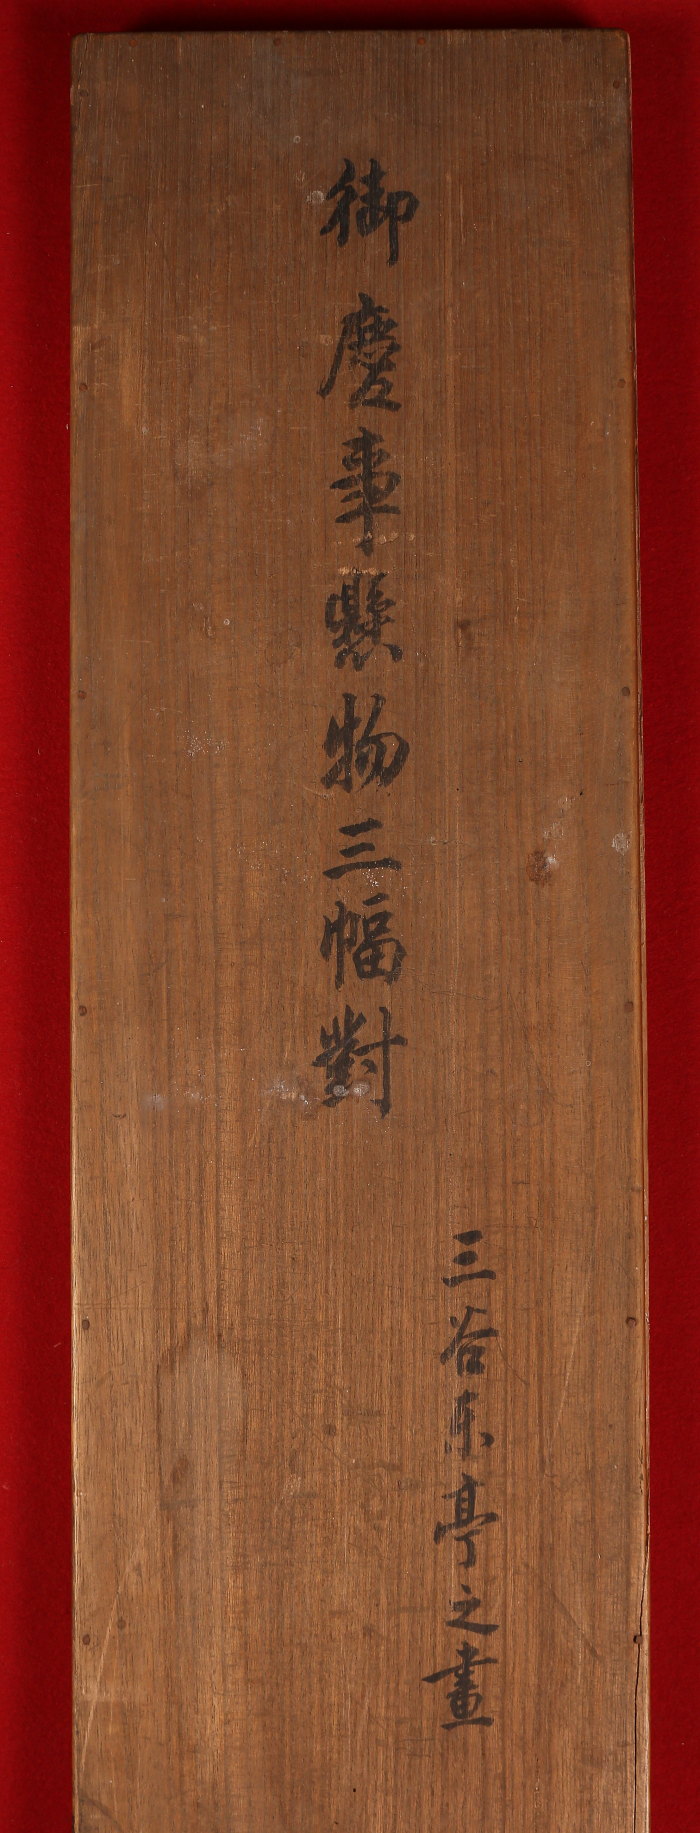 御慶事懸物三幅對
三谷东亭之畫